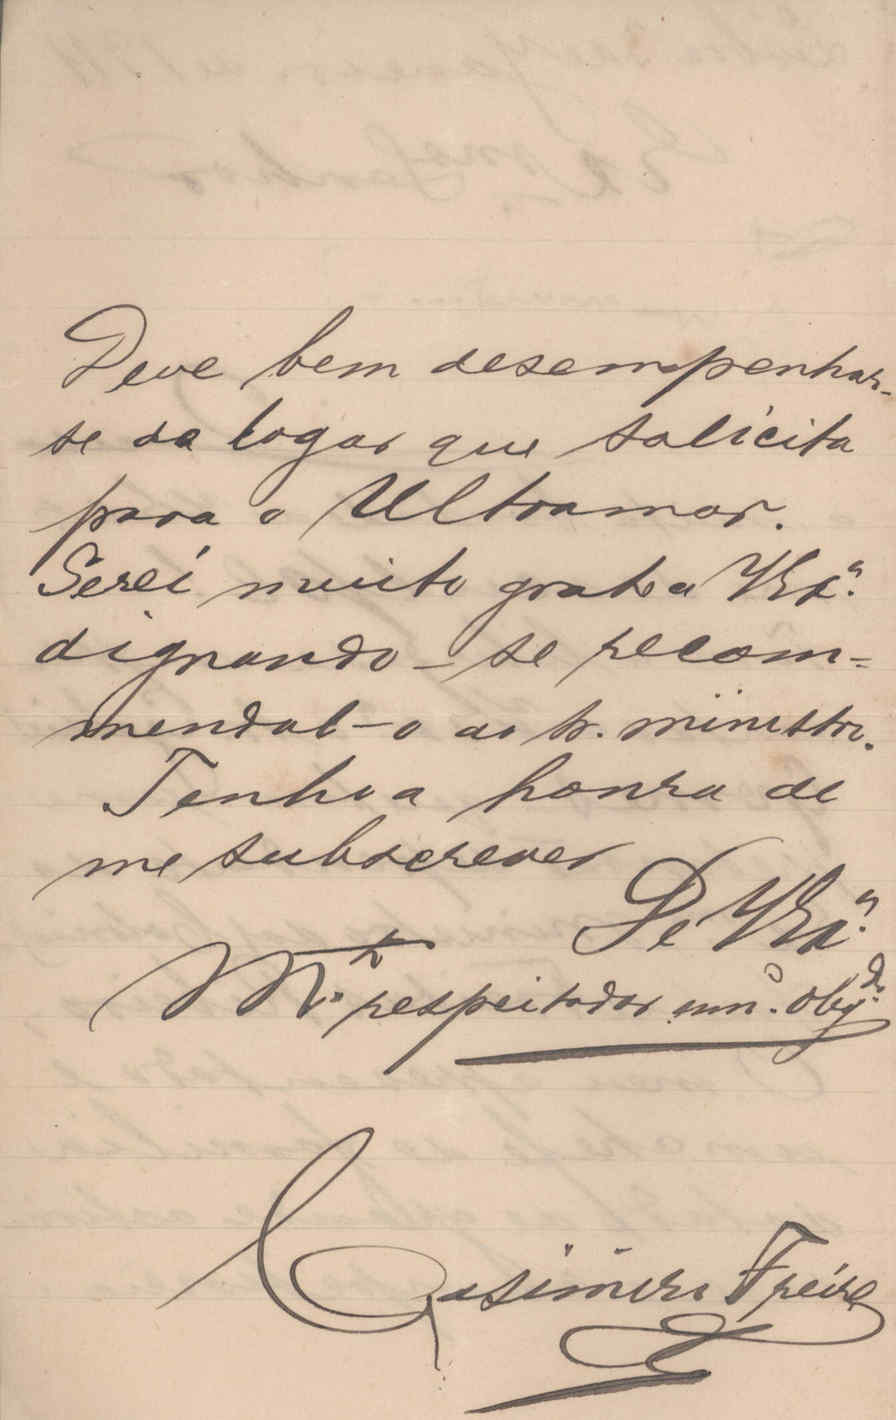 Deve bem desempenhar-
se do logar que solicita
para o Ultramar.
Serei muito grato a VEx.ª
dignando-se recom=
mendal-o ao sr. ministro.
Tenho a honra de
me subscrever
De VEx.ª
M.to respeitador mn.º obg.do
Casimiro Freire